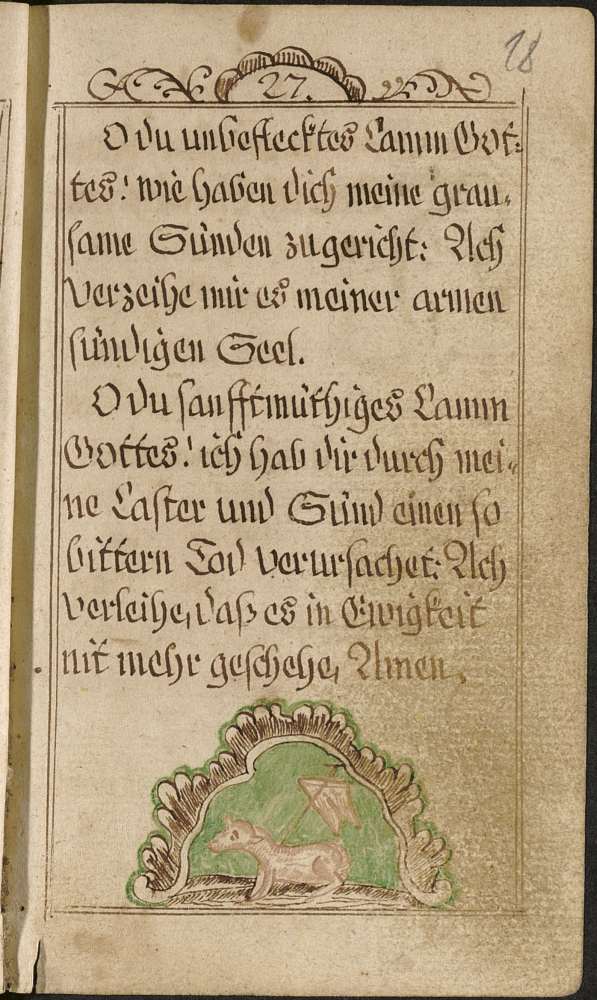 18
27.
O du unbeflecktes Lamm Got:
tes! wie haben dich meine grau-
same Sünden zugericht: Ach
verzeihe mir es meiner armen
sündigen Seel.
O du sanfftmüthiges Lamm
Gottes! ich hab dir durch mei-
ne Laster und Sünd einen so
bittern Tod verursachet: Ach
verleihe, daß es in Ewigkeit
nit mehr geschehe, Amen.